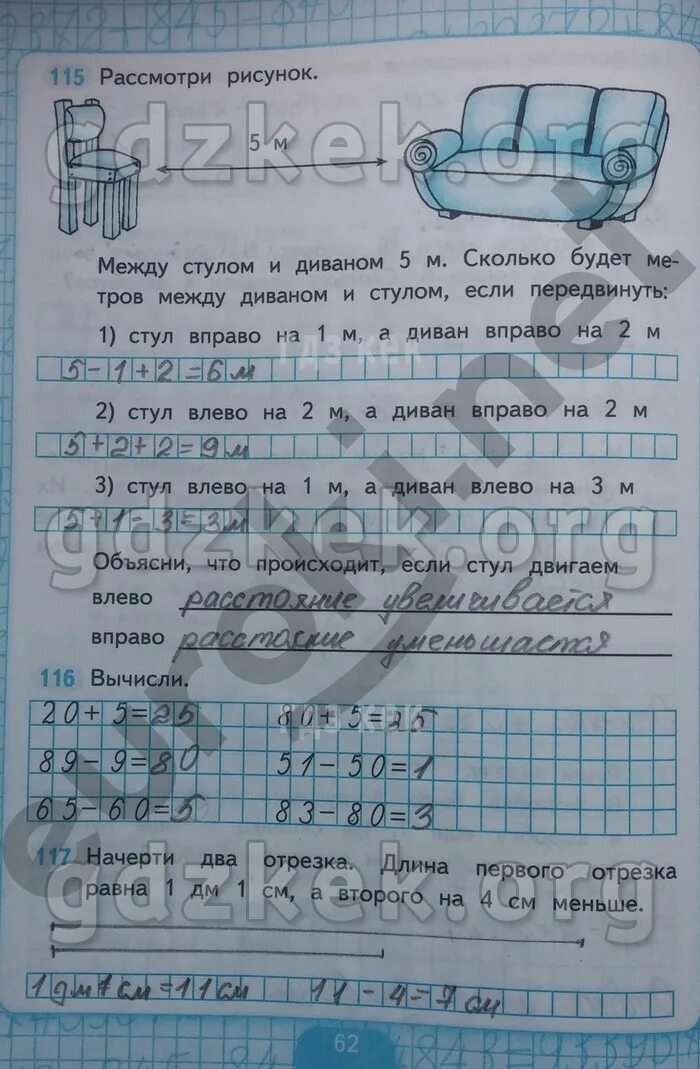 115 Рассмотри рисунок.
5 м
Между стулом и диваном 5 м. Сколько будет ме-
тров между диваном и стулом, если передвинуть:
1) стул вправо на 1 м, а диван вправо на 2 м
5-1+2=6м
2) стул влево на 2 м, а диван вправо на 2 м
5+2+2=9м
3) стул влево на 1 м, а диван влево на 3 м
5+1-3=3м
Объясни, что происходит, если стул двигаем
влево расстояние увеличивается
вправо расстояние уменьшается
116 Вычисли.
20+5=25 80+5=
89-9=80 51-50=1
65-60=5 83-80=3
117 Начерти два отрезка. Длина первого отрезка
равна 1 дм 1 см, а второго на 4 см меньше.
1дм1см=11см 11-4=7см
62
gdzkek.org
gdzkek.org
gdzkek.org
gdzkek.org
euroki.net
гдз кек
гдз кек